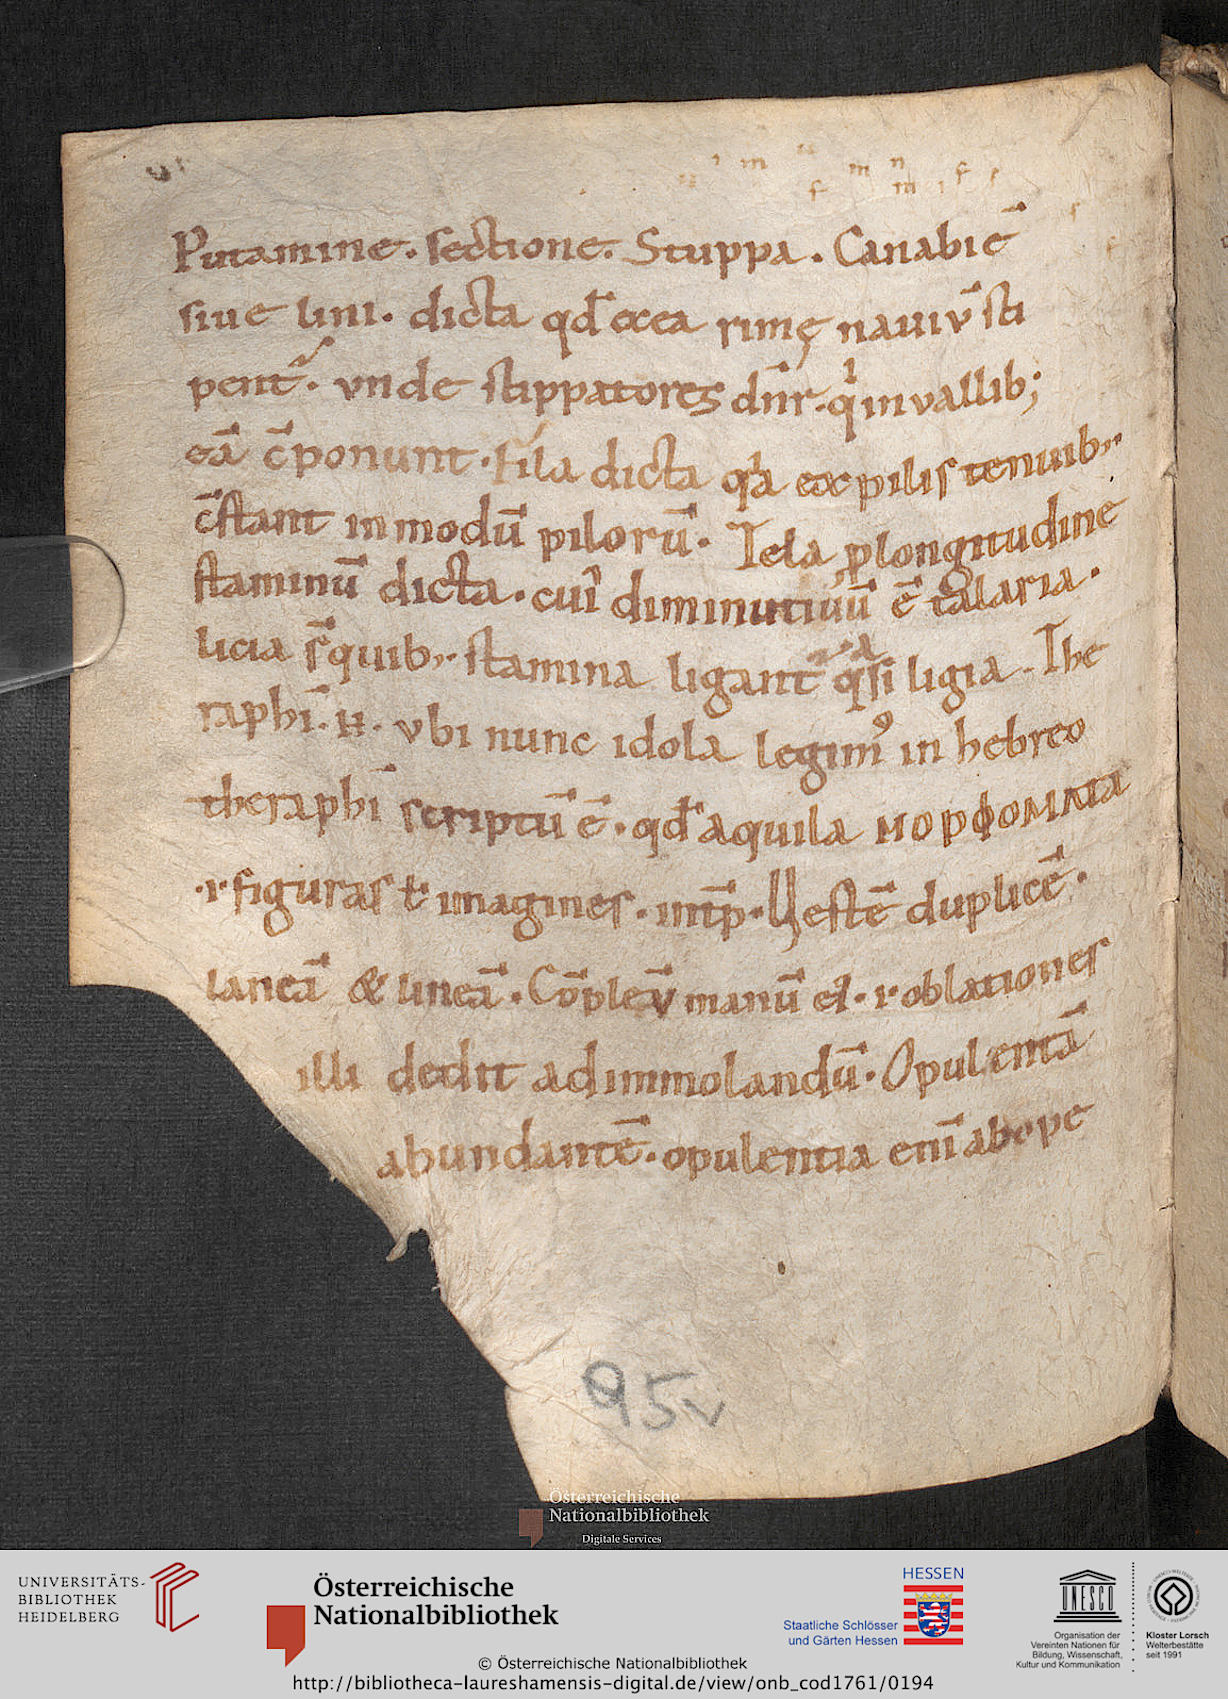 Putamine. sectione. Stuppa. Canabiē
siue lini. dicta qđ exea rimę nauiū sti
pent᷑. vnde stippatores dn̄r. qⁱ inuallib;
eā c̄ponunt. Fila dicta qa expilis tenuib;.
c̄stant inmodū pilorū. Tela ꝑlongitudine
staminū dicta. cui᷑ diminutiuū ē talaria.
licia s̄ quib;. stamina ligant᷑ qᵃsi ligia. The
raphī. N. vbi nunc idola legimꝰ in hebreo
theraphī scriptū ē. qđ aquila ΜΟΡΦΟΜΑΤΑ
.i. figuras ł imagines. int̄p. Uestē duplicē.
laneā & lineā. Cōpleuͭ manū ei᷑. i. oblationes
illi dedit adimmolandū. Opulentā
abundantē. opulentia enī abope
95v
Österreichische
Nationalbibliothek
Digitale Services
UNIVERSITÄTS-
BIBLIOTHEK
HEIDELBERG
Österreichische
Nationalbibliothek
HESSEN
Staatliche Schlösser
und Gärten Hessen
UNESCO
Organisation der
Vereinten Nationen für
Bildung, Wissenschaft,
Kultur und Kommunikation
Kloster Lorsch
Welterbestätte
seit 1991
© Österreichische Nationalbibliothek
http://bibliotheca-laureshamensis-digital.de/view/onb_cod1761/0194